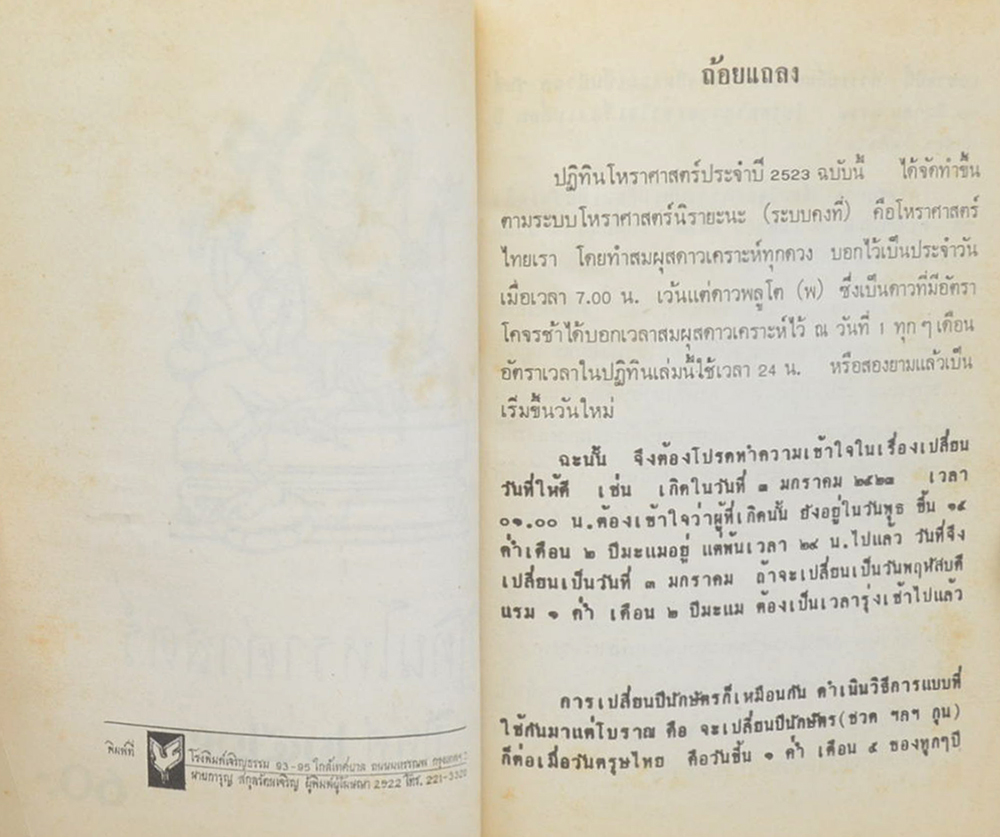 พิมพ์ที่
โรงพิมพ์เจริญธรรม 93-95 ใกล้เทศบาล ถนนมหรรณพ กรุงเทพฯ
นายการุญ สกุลรัตนเจริญ ผู้พิมพ์ผู้โฆษณา 2522 โทร. 221-3320
ถ้อยแถลง
ปฏิทินโหราศาสตร์ประจำปี 2523 ฉบับนี้ ได้จัดทำขึ้น
ตามระบบโหราศาสตร์นิรายะนะ (ระบบคงที่) คือโหราศาสตร์
ไทยเรา โดยทำสมผุสดาวเคราะห์ทุกดวง บอกไว้เป็นประจำวัน
เมื่อเวลา 7.00 น. เว้นแต่ดาวพลูโต (พ) ซึ่งเป็นดาวที่มีอัตรา
โคจรช้าได้บอกเวลาสมผุสดาวเคราะห์ไว้ ณ วันที่ 1 ทุกๆเดือน
อัตราเวลาในปฏิทินเล่มนี้ใช้เวลา 24 น. หรือสองยามแล้วเป็น
เริ่มขึ้นวันใหม่
ฉะนั้น จึงต้องโปรดทำความเข้าใจในเรื่องเปลี่ยน
วันที่ให้ดี เช่น เกิดในวันที่ ๓ มกราคม ๒๕๒๓ เวลา
๐๑.๐๐ น.ต้องเข้าใจว่าผู้ที่เกิดนั้น ยังอยู่ในวันพุธ ขึ้น ๑๕
ค่ำเดือน ๒ ปีมะแมอยู่ แต่พ้นเวลา ๒๔ น.ไปแล้ว วันที่จึง
เปลี่ยนเป็นวันที่ ๓ มกราคม ถ้าจะเปลี่ยนเป็นวันพฤหัสบดี
แรม ๑ ค่ำ เดือน ๒ ปีมะแม ต้องเป็นเวลารุ่งเช้าไปแล้ว
การเปลี่ยนปีนักษัตรก็เหมือนกัน ดำเนินวิธีการแบบที่
ใช้กันมาแต่โบราณ คือ จะเปลี่ยนปีนักษัตร(ชวด ฯลฯ กุน)
ก็ต่อเมื่อวันตรุษไทย คือวันขึ้น ๑ ค่ำ เดือน ๕ ของทุกๆปี